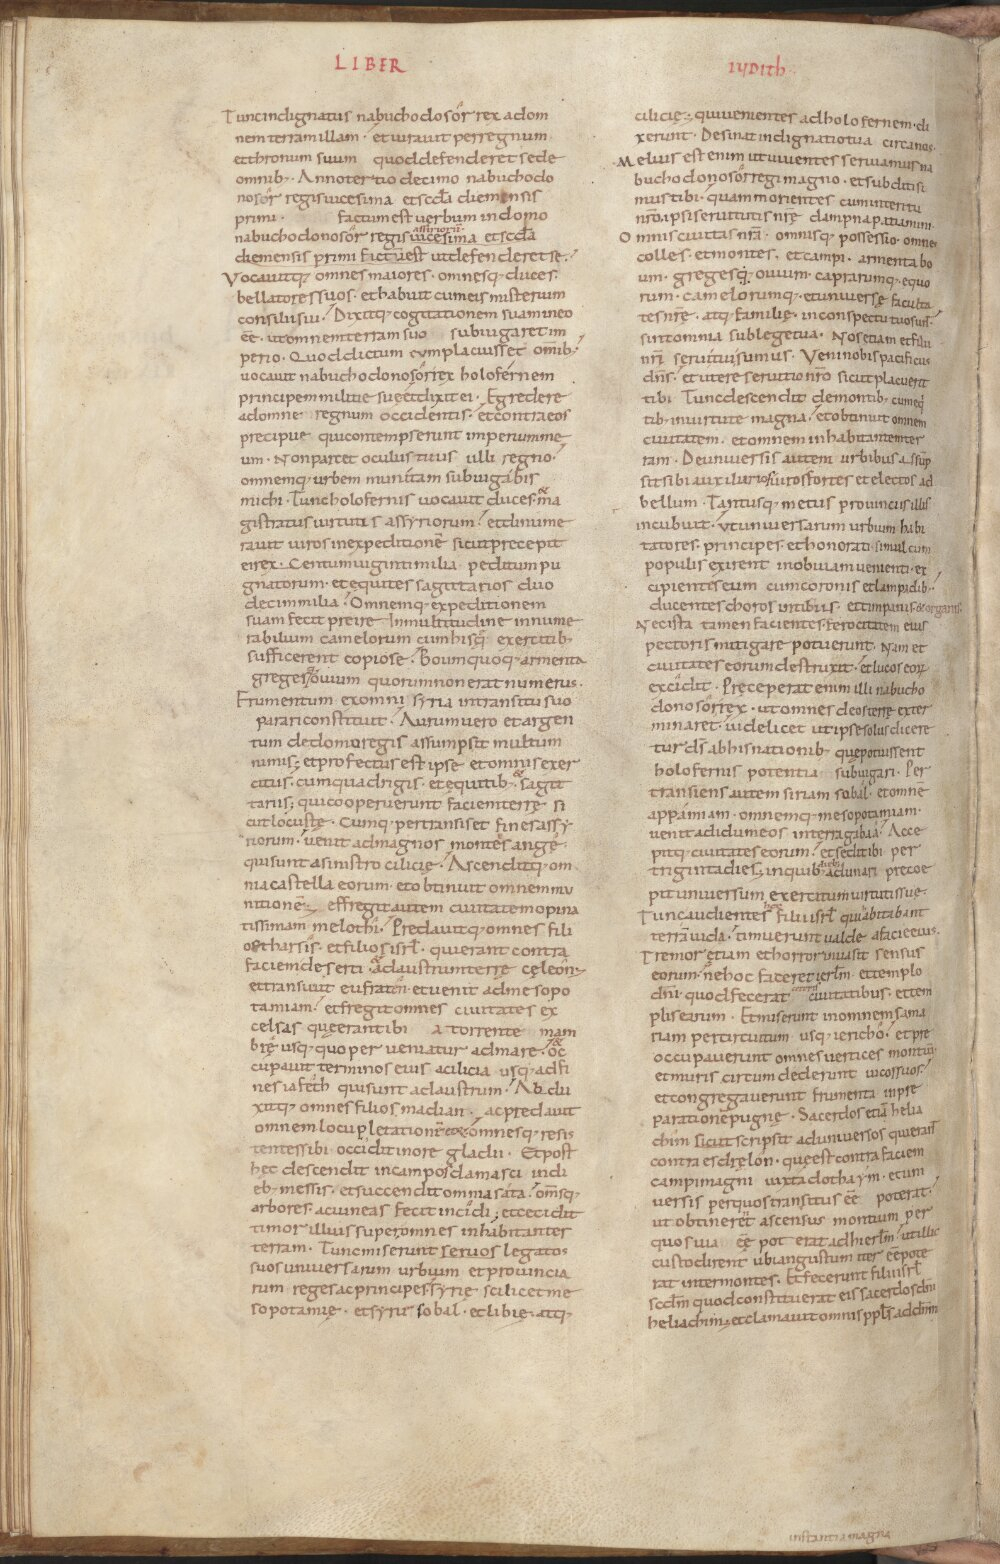 LIBER
IUDITh
Tunc indignatus nabuchodosór rex adom
nem terram illam · et iuravit per regnum
et thronum suum quod defenderet se de
omnib; · Anno tertio decimo nabuchodo
nosór regis vicesima et scdā die mensis
primi · factum est verbum in domo
nabuchodonosór regis assirioru vicesima et scdā
die mensis primi factū est ut defenderet se ·
Vocavitq; omnes maiores · omnesq; duces ·
bellatores suos · et habuit cum eis misterium
consilii sui · Dixitq; cogitationem suam in eo
eē · ut omnem terram suo subiugaret im
perio · Quod dictum cum placuisset omib; ·
vocavit nabuchodonosór rex holofernem
principem militie sue et dixit ei · Egredere
ad omne regnum occidentis · et contra eos
precipue qui contempserunt imperium me
um · Non parcet oculus tuus ulli regno ·
omnemq; urbem munitam subiugabis
michi · Tunc holofernis vocavit duces · & ma
gistratus virtutis assyriorum · et dinume
ravit viros in expeditionē sicut precepit
ei rex · Centum viginti milia peditum pu
gnatorum · et equites sagittarios duo
decim milia · Omnemq; expeditionem
suam fecit preire in multitudine innume
rabilium camelorum cum hisq̄ exercitib;
sufficerent copiose · Boum quoq; armenta
greges q; ovium quorum non erat numerus ·
Frumentum ex omni syria in transitu suo
parari constituit · Aurum vero et argen
tum de domo regis assumpsit multum
nimis; et profectus est ipse et omnis exer
citus · cum quadrigis · et equitib; · & sagit
tariis; qui cooperuerunt faciem terrę si
cut locuste · Cumq; pertransiset fines assy
riorum · venit ad magnos montes ange ·
qui sunt a sinistro cilicie · Ascenditq; om
nia castella eorum · et obtinuit omnem mu
nitionē · effregit autem civitatem opina
tissimam melothi · Predavitq; omnes fili
os tharsis · et filios isrl · qui erant contra
faciem deserti · & ad austrum terrę celeon ·
et transivit eufraten · et venit ad mesopo
tamiam · et fregit omnes civitates ex
celsas que erant ibi a torrente mam
brę usq; quo perveniatur ad mare · & oc
cupavit terminos eius a cilicia usq; ad fi
nes iafeth qui sunt ad austrum · Addu
xitq; omnes filios madian · ac predavit
omnem locupletationē eorū omnesq; resis
tentes sibi occidit in ore gladii · Et post
hec descendit in campos damasci in di
eb; messis · et succendit omnia sata · omsq;
arbores ac vineas fecit incidi; et cecidit
timor illius super omnes inhabitantes
terram · Tunc miserunt servos legatos
suos universarum urbium et provincia
rum reges ac principes syrię scilicet me
sopotamię · et syrie sobal · et libię · atq;
cilicię; qui venientes ad holofernem · di
xerunt · Desinat indignatio tua circa nos ·
Melius est enim ut viventes serviamus na
buchodonosór regi magno · et subditi si
mus tibi · quam morientes cum interitu
nrō ipsi servitutis nrē dampna patiamur ·
Omnis civitas nrā · omnisq; possessio · omnes
colles · et montes · et campi · armenta bo
um · gregesq; ovium · caprarumq; · equo
rum · camelorumq; · et universę faculta
tes nrę · atq; familie · in conspectu tuo sunt ·
sint omnia sub lege tua · Nos etiam et filii
nri servi tui sumus · Veni nobis pacificus
dns · et utere servitio nrō sicut placuerit
tibi · Tunc descendit de montib; cum eq
tib; in virtute magna · et obtinuit omnem
civitatem · et omnem inhabitantem ter
ram · De universis autem urbibus assūp
sit sibi auxiliarios viros fortes et electos ad
bellum · Tantusq; metus provinciis illis
incubuit · ut universarum urbium habi
tatores · principes · et honorati · simul cum
populis exirent in obviam venienti · ex
cipientes eum cum coronis et lampadib; ·
ducentes choros in tibiis · et timpanis · & organis ·
Nec ista tamen facientes · ferocitatem eius
pectoris mitigare potuerunt · Nam et
civitates eorum destruxit · et lucos eorū
excidit · Preceperat enim illi nabucho
donosór rex · ut omnes deos terrę exter
minaret · videlicet ut ipse solus dicere
tur ds ab his nationib; que potuissent
holofernis potentia subiugari · Per
transiens autem siriam sobal · et omnē
appamiam · omnemq; mesopotamiam ·
venit ad idumeos in terra gabaa · Acce
pitq; civitates eorum · et sedit ibi per
triginta dies; in quib; dieb; adunari prece
pit universum exercitum virtutis sue ·
Tunc audientes hęc filii isrl qui abitabant
terrā iuda · timuerunt valde a facie eius ·
Tremor etiam et horror invasit sensus
eorum · ne hoc faceret ierlm · et templo
dni · quod fecerat ceteris civitatibus · et tem
plis earum · Et miserunt in omnem sama
riam per circuitum usq; iericho · et pre
occupaverunt omnes vertices montiū ·
et muris circumdederunt vicos suos ·
et congregaverunt frumenta in pre
parationē pugnę · Sacerdos etiā helia
chim sicut scripsit ad universos qui erant
contra esdrelon · que est contra faciem
campi magni iuxta dothaym · et uni
versis per quos transitus eē poterat ·
ut obtinerēt ascensus montium per
quos via eē poterat ad hierlm · ut illic
custodirent ubi angustum iter eē pote
rat inter montes · Et fecerunt filii isrl
scdm quod constituerat eis sacerdos dni
heliachim · et clamavit omnis ppls ad dnm
instantia magna